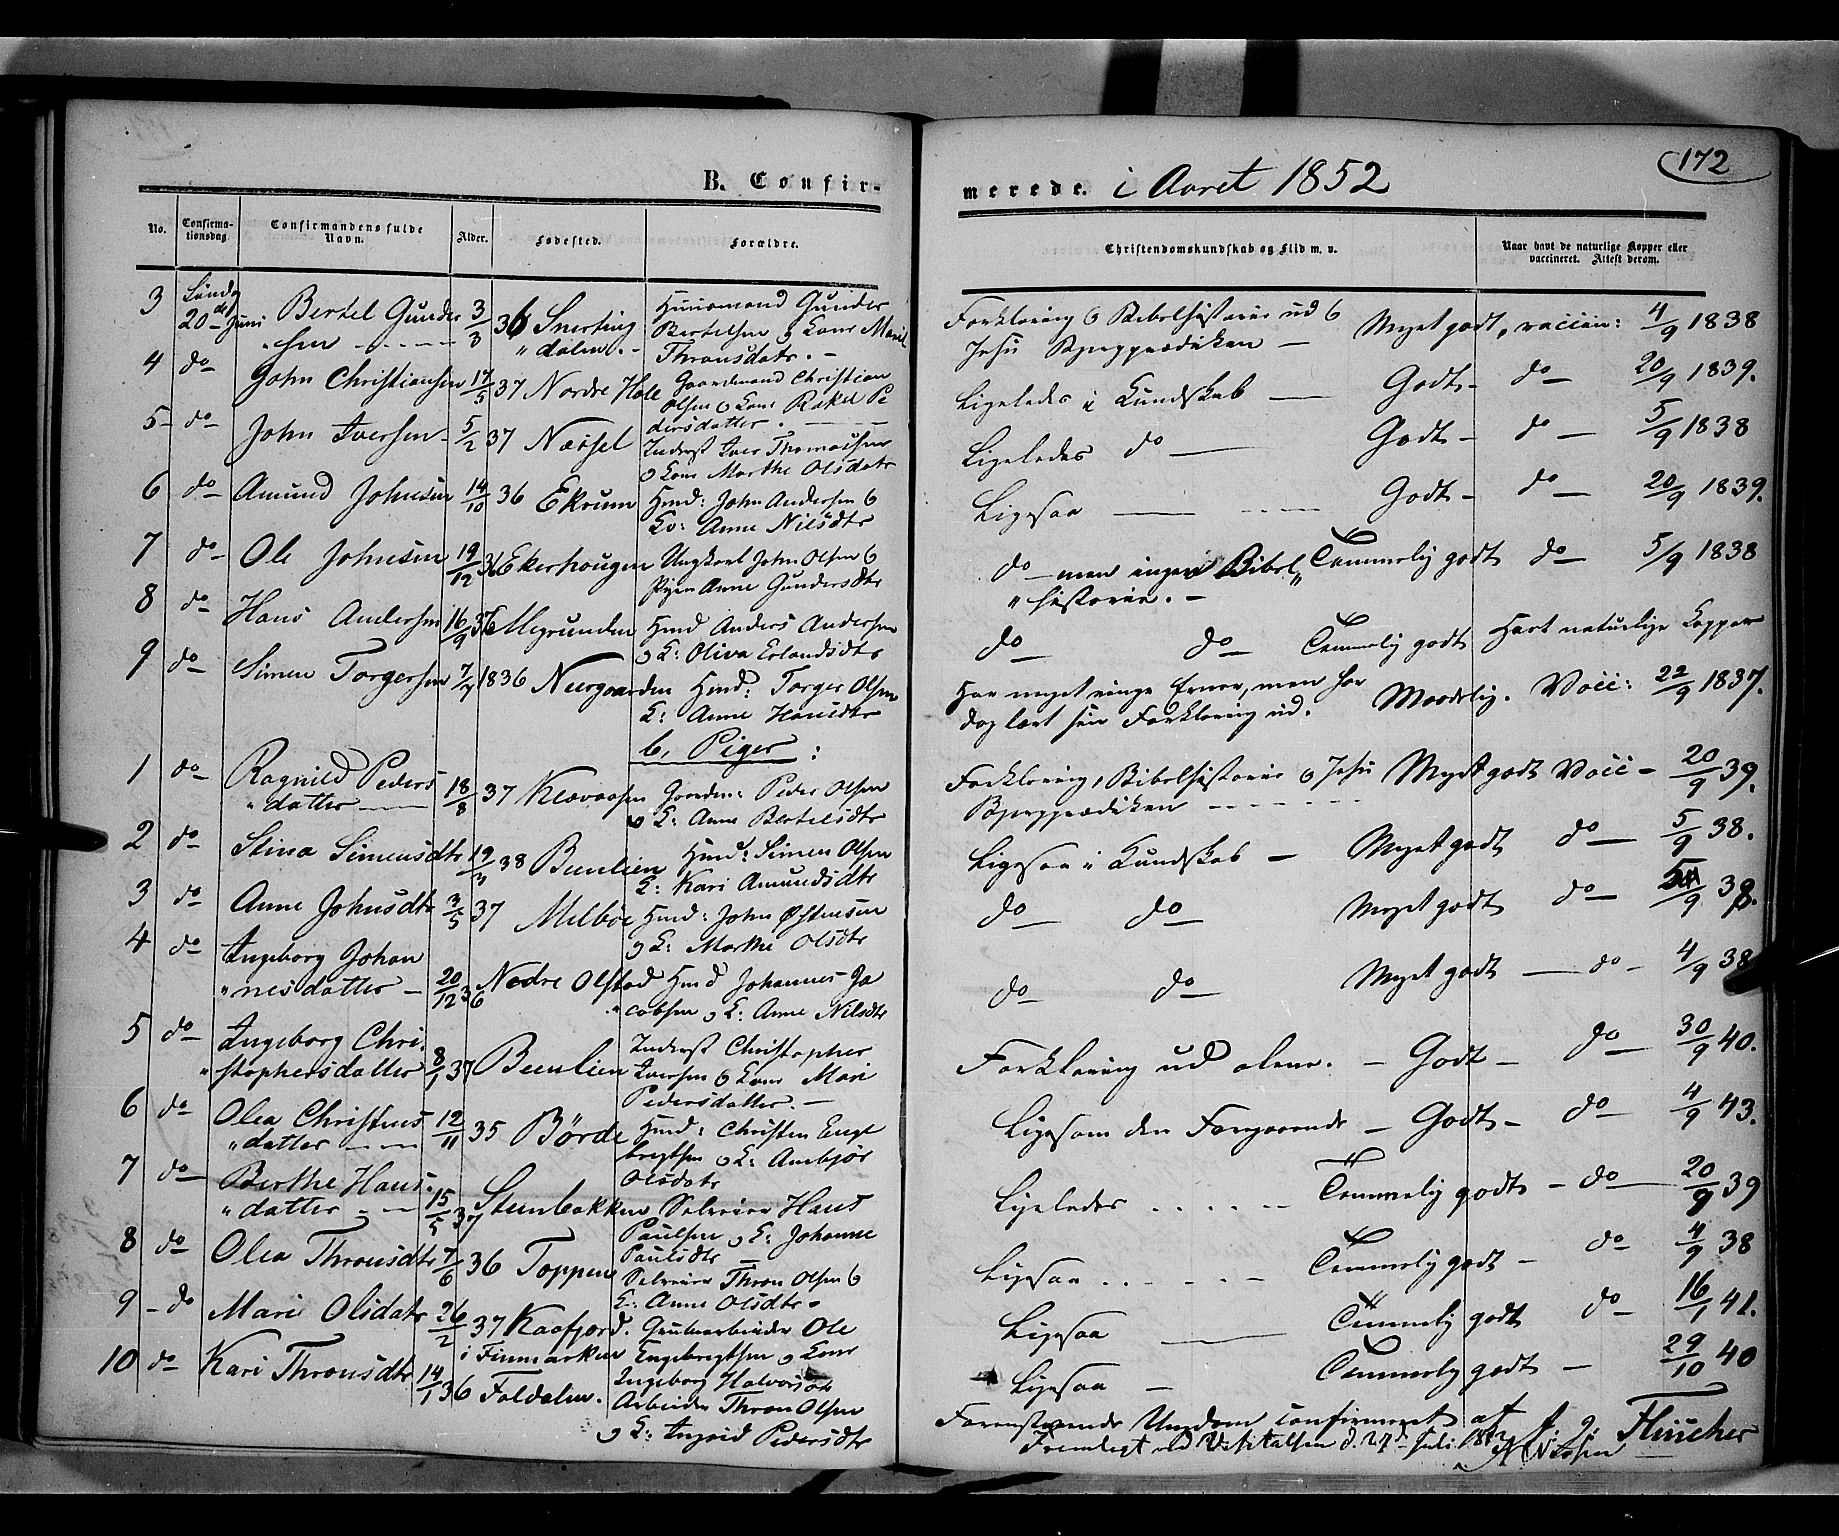 B. Confir-
merede. i Aaret 1852
172
No.
Confirma-
tionsdag
Confirmandens fulde
Navn.
Alder.
Fødested.
Forældre.
Christendomskundskab og Flid m. v.
Naar havt de naturlige Kopper eller
vaccineret. Attest derom.
3 Søndag 20de Juni Bertel Gunder 3/3 36 Snerting Huusmand Gunder
"sen "dalen. Bertelsen og Kone Mari
Thronsdatr. -
Forklaring og Bibelhistorie ud og Meget godt, vaccin: 4/9 1838
Jesu Bjergprædiken -
4 do John Christiansen 17/5 37 Nordre Hole Gaardmand Christian
Olsen og Kone Rakel Pe
dersdatter.
Ligeledes i Kundskab Godt - do - 20/9 1839.
5 - do John Iversen 5/2 37 Næssel Inderst Iver Thomassen
og Kone Marthe Olsdatr
Ligeledes do Godt - do - 5/9 1838
6 do Amund Johnsen 14/10 36 Ekrum Hmd: John Andersen og
Ko: Anne Nilsdtr
Ligesaa Godt - do - 20/9 1839.
7 do Ole Johnsen 19/12 36 Ekerhougen Ungkarl John Olsen og
Pigen Anne Gundersdtr
do - men ingen Bibel" Temmelig godt do - 5/9 1838
"historie. -
8 do Hans Andersen 16/9 36 Megrunden Hmd Anders Andersen
og K: Oliva Erlandsdtr
do do Temmelig godt Havt naturlige Kopper
9 do Simen Torgersen 7/7 1836 Neergaarden Hmd: Torger Olsen
K: Anne Hansdtr
Har meget ringe Evner, men har Maadelig. Vacc: 22/9 1837.
dog lært sin Forklaring ud.
b, Piger:
1 do Ragnild Peders 18/8 37 Klevaasen Gaardm: Peder Olsen
"datter og K: Anne Bertelsdtr
Forklaring, Bibelhistorie og Jesu Meget godt Vacc - 20/9 39.
Bjergprædiken
2 do Stina Simensdtr 19/3 38 Beenlien Hmd: Simen Olsen
K: Kari Amundsdtr
Ligesaa i Kundskab - Meget godt do - 5/9 38.
3 do Anne Johnsdtr 3/5 37 Melbøe Hmd: John Østensen
og K: Marthe Olsdtr
do do Meget godt do - 5/9 38.
4 do Ingeborg Johan 20/12 36 Nedre Olstad Hmd Johannes Ja
"nesdatter - "cobsen og K: Anne Nilsdtr
do do Meget godt - do - 4/9 38
5 do Ingeborg Chri- 8/1 37 Beenlien Inderst Christopher
"stophersdatter Iversen og Kone Mari
Pedersdatter. -
Forklaring ud alene. - Godt - do - 30/9 40.
6 do Olea Christens 12/11 35 Börde Hmd: Christen Enge
"datter brigtsen og K: Anbjør
Olsdatr
Ligesom den Foregaaende - Godt - do - 4/9 43.
7 do Berthe Hans- 15/5 37 Steenbakken Selveier Hans
"datter Paulsen og K: Johanne
Paulsdtr
Ligeledes Temmelig godt - do - 20/9 39
8 do Olea Thronsdtr 7/6 36 Toppen Selveier Thron Olsen og
K: Anne Olsdtr.
Ligesaa Temmelig godt - do 4/9 38
9 - do Mari Olsdatr 26/2 37 Kaafjord. Grubearbeider Ole
i Finmarken Engebrigtsen og Kone
Ingeborg Halvorsdtr
Ligesaa Temmelig godt do - 16/1 41.
10 do Kari Thronsdtr 14/1 36 Foldalen. Arbeider Thron Olsen
og K: Ingrid Pedersdtr
Ligesaa - Temmelig godt - 29/10 40
Foranstaaende Ungdom confirmeret af
Fremlagt ved Visitatsen d. 27de Juli 1852